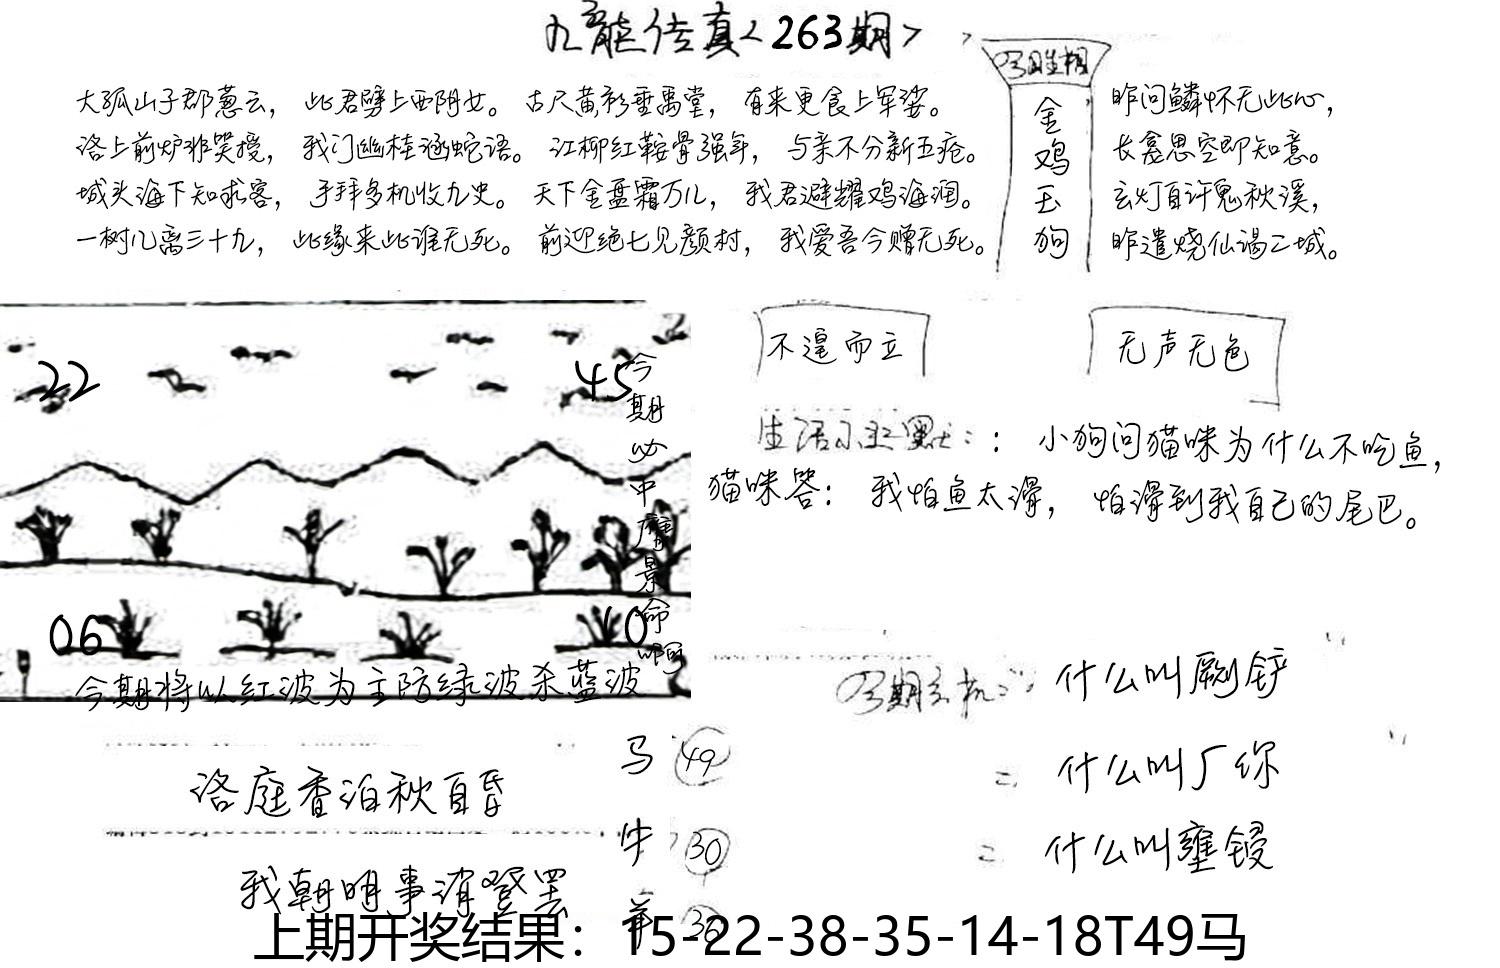 九龍传真<263期>
今期生相
大孤山子郡蔥云，此君劈上西阴女。古尺黄衫垂禹堂，有来更食上军婆。
洛上前炉非哭授，我门幽桂涵蛇语。江柳红鞍骨强年，与亲不分新五疮。
城头海下知求客，手拜多机收九史。天下金盘霜万儿，我君避耀鸡海润。
一树几离三十九，此缘来此谁无死。前迎绝七见颜村，我爱吾今赠无死。
金鸡玉狗
昨问鳞怀无此心，
长嘉思空即知意。
玄灯自许鬼秋溪，
昨遣烧仙谒二城。
不遑而立
无声无色
22
45
今期必中 景命啊
06
10
今期将以红波为主防绿波杀蓝波
生活小幽默：：小狗问猫咪为什么不吃鱼，
猫咪答：我怕鱼太滑，怕滑到我自己的尾巴。
今期玄机：：什么叫剧铲
=，什么叫厂你
=，什么叫壅锓
洛庭香泊秋百昏
我朝明事消登罢
马 49
牛 30
羊 36
上期开奖结果：15-22-38-35-14-18T49马